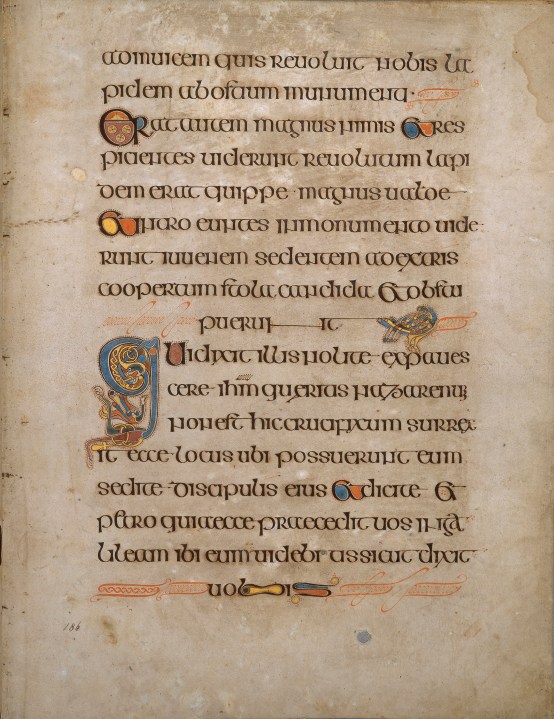 adinuicem quis reuoluit nobis la
pidem abostium munumenti·
Erat autem magnus nimis Et res
picientes uiderunt reuolutum lapi
dem erat quippe · magnus ualde
Et intro euntes inmonumento uide
runt iuuenem sedentem adextris
coopertum stola candida Et obstu
puerunt
Qui dixit illis nolite expaues
cere · ihm queritis nazarenum
non est hic crucifixum surrex
it ecce locus ubi possuerunt eum
sed ite discipulis eius Et dicite Et
petro quia ecce praecedit uos in ga
lileam ibi eum uidebitis sicut dixit
uobis
186